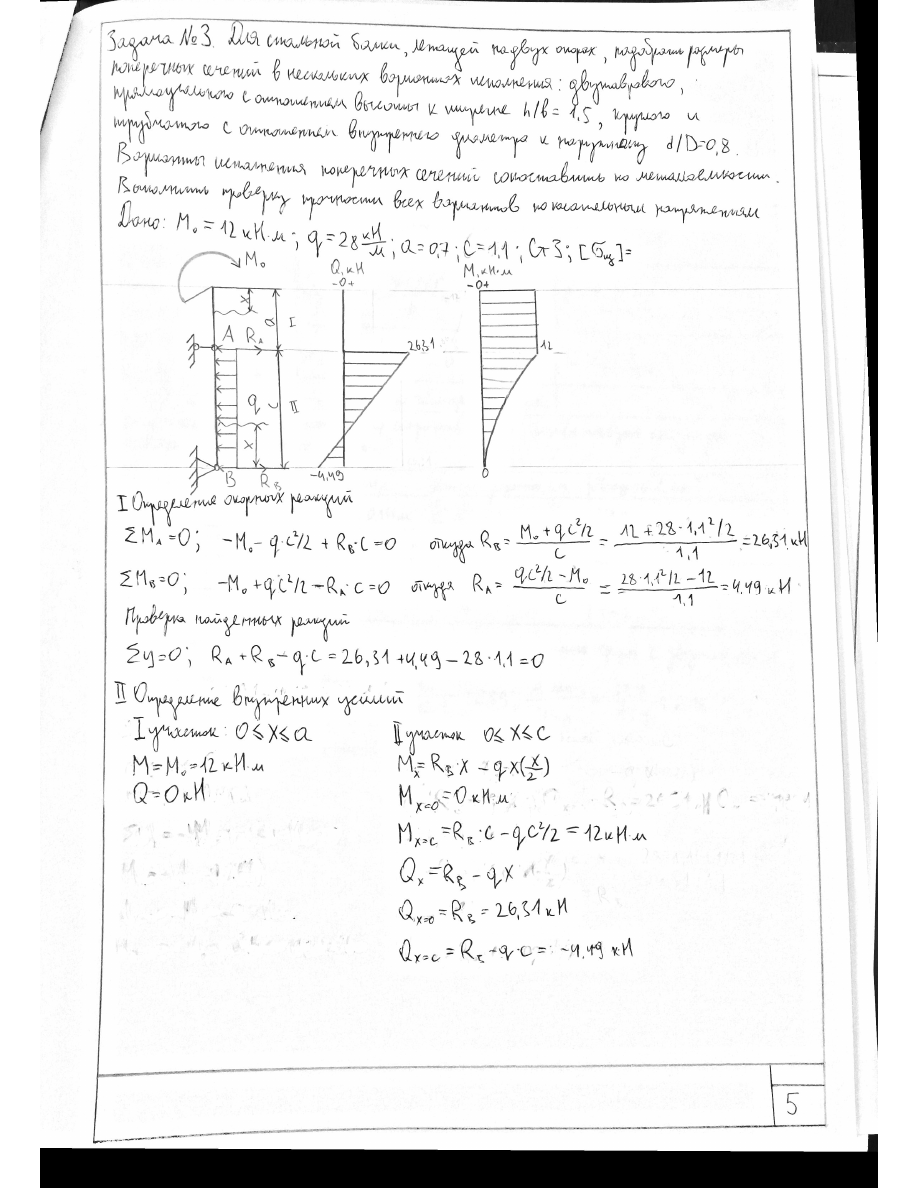 Задача №3. Для стальной балки, лежащей на двух опорах, подобрать размеры
поперечных сечений в нескольких вариантах исполнения: двутаврового,
прямоугольного с отношением высоты к ширине h/b = 1,5, круглого и
трубчатого с отношением внутреннего диаметра к наружному d/D=0,8.
Варианты исполнения поперечных сечений сопоставить по металлоемкости.
Выполнить проверку прочности всех вариантов по касательным напряжениям
Дано: M₀ = 12 кН·м; q = 28 кН/м; a = 0,7; c = 1,1; Ст 3; [σиз]=
M₀
Q, кН
- 0 +
M, кН·м
- 0 +
x
a
I
A
R_A
26,31
12
q
c
II
x
B
R_B
-4,49
0
I Определение опорных реакций
ΣM_A=0; -M₀-q·c²/2 + R_B·c=0 откуда R_B = (M₀+qc²/2)/c = (12+28·1,1²/2)/1,1 = 26,31 кН
ΣM_B=0; -M₀+qc²/2-R_A·c=0 откуда R_A = (qc²/2-M₀)/c = (28·1,1²/2-12)/1,1 = 4,49 кН
Проверка найденных реакций
Σy=0; R_A+R_B-q·c=26,31+4,49-28·1,1=0
II Определение внутренних усилий
I участок: 0≤x≤a
II участок 0≤x≤c
M=M₀=12 кН·м
M_x=R_B·x-q·x(x/2)
Q=0 кН
M_x=0=0 кН·м
M_x=c=R_B·c-qc²/2=12 кН·м
Q_x=R_B-qx
Q_x=0=R_B=26,31 кН
Q_x=c=R_B-q·c=-4,49 кН
5